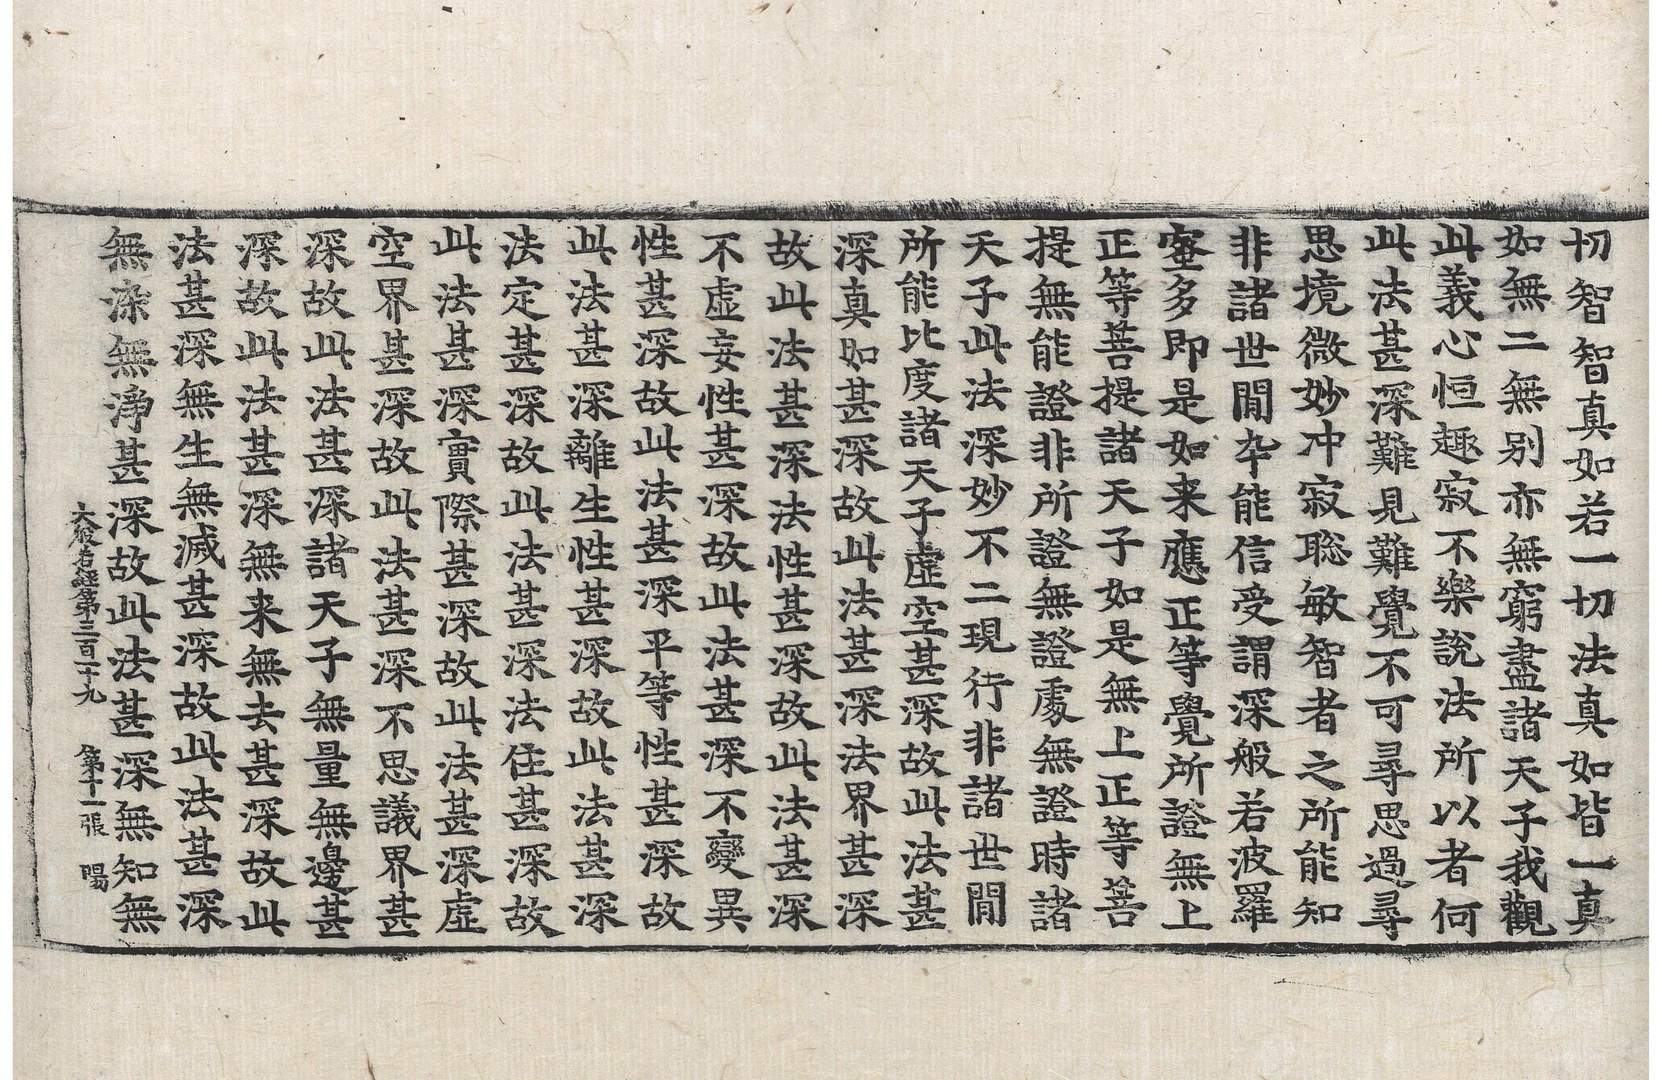 切智智真如若一切法真如皆一真
如無二無別亦無窮盡諸天子我觀
此義心恒趣寂不樂說法所以者何
此法甚深難見難覺不可尋思過尋
思境微妙冲寂聡敏智者之所能知
非諸世間卒能信受謂深般若波羅
蜜多即是如来應正等覺所證無上
正等菩提諸天子如是無上正等菩
提無能證非所證無證處無證時諸
天子此法深妙不二現行非諸世間
所能比度諸天子虛空甚深故此法甚
深真如甚深故此法甚深法界甚深
故此法甚深法性甚深故此法甚深
不虛妄性甚深故此法甚深不變異
性甚深故此法甚深平等性甚深故
此法甚深離生性甚深故此法甚深
法定甚深故此法甚深法住甚深故
此法甚深實際甚深故此法甚深虛
空界甚深故此法甚深不思議界甚
深故此法甚深諸天子無量無邊甚
深故此法甚深無来無去甚深故此
法甚深無生無滅甚深故此法甚深
無染無淨甚深故此法甚深無知無
大般若經第三百一十九 第十一張 暘